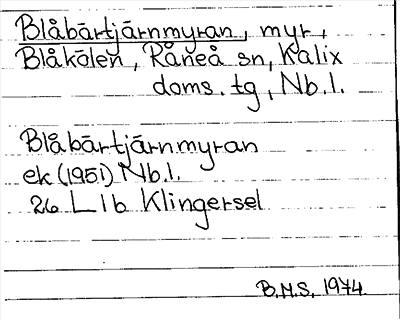 Blåbärtjärnmyran, myr,
Blåkölen, Råneå sn, Kalix
doms. tg, Nb.l.
Blåbärtjärnmyran
ek (1951) Nb.l.
26 L 1b Klingersel
B.M.S, 1974.